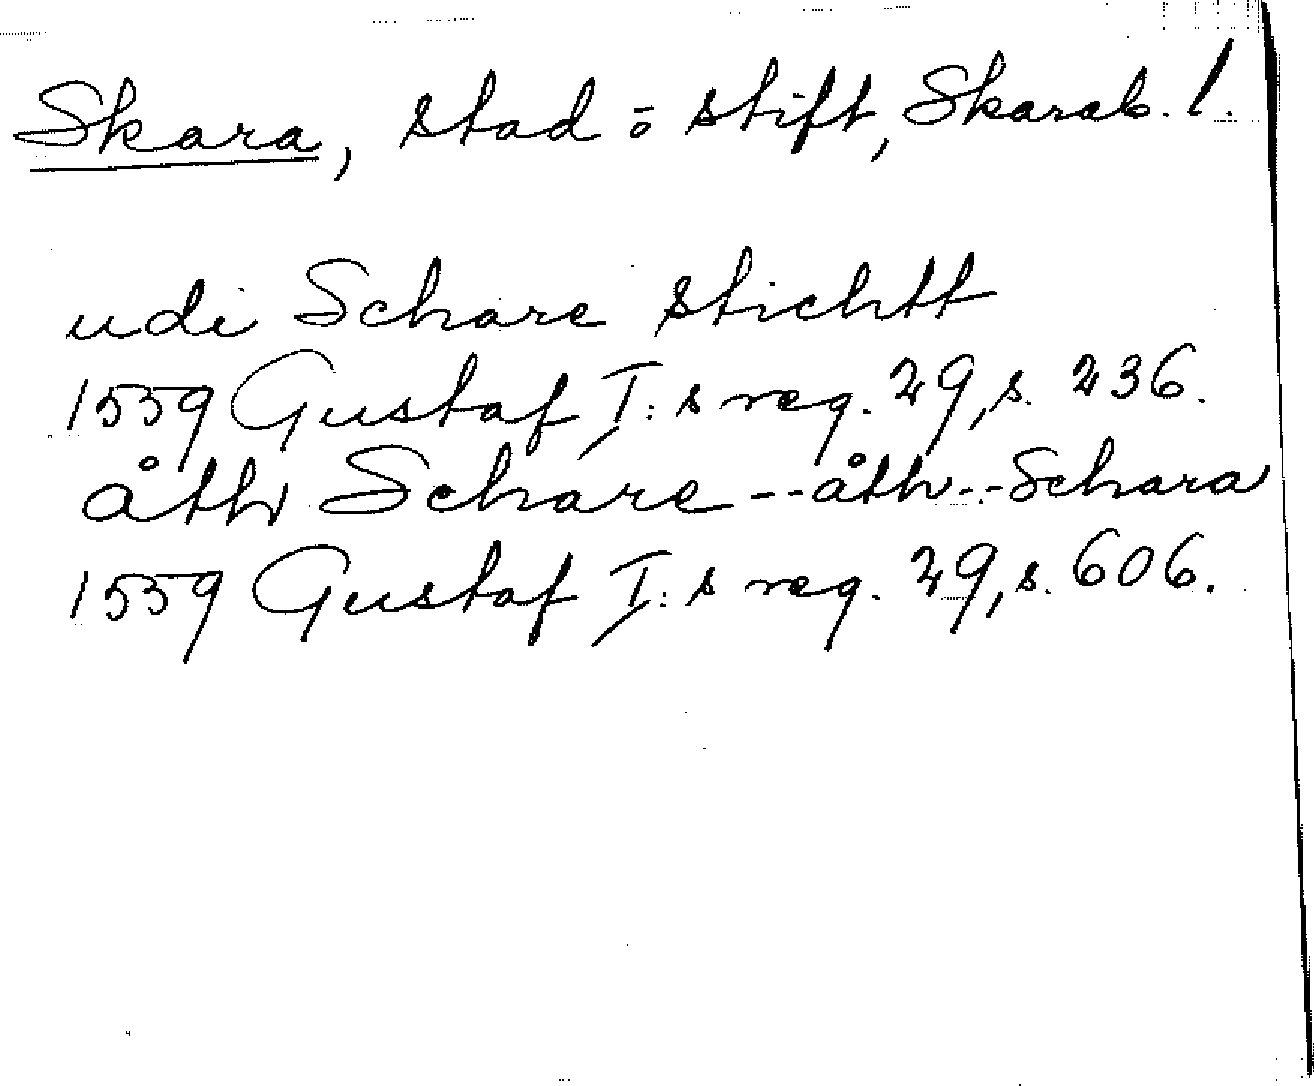 Skara, stad o stift, Skarab. l.
udi Schare stichtt
1559 Gustaf I: s reg. 29, s. 236.
åth Schare -- åth -- Schara
1559 Gustaf I: s reg. 29, s. 606.